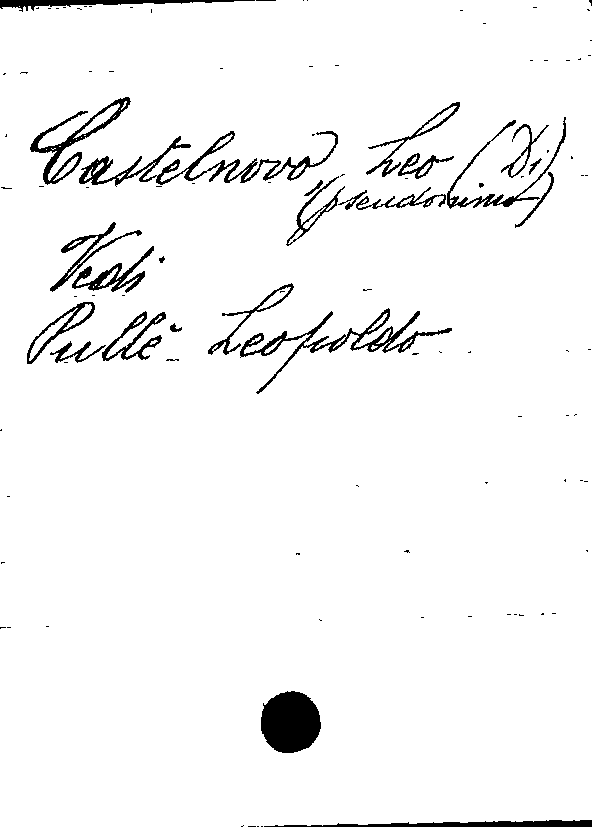 Castelnovo, Leo (Di)
(pseudonimo)
Vedi
Pullè Leopoldo